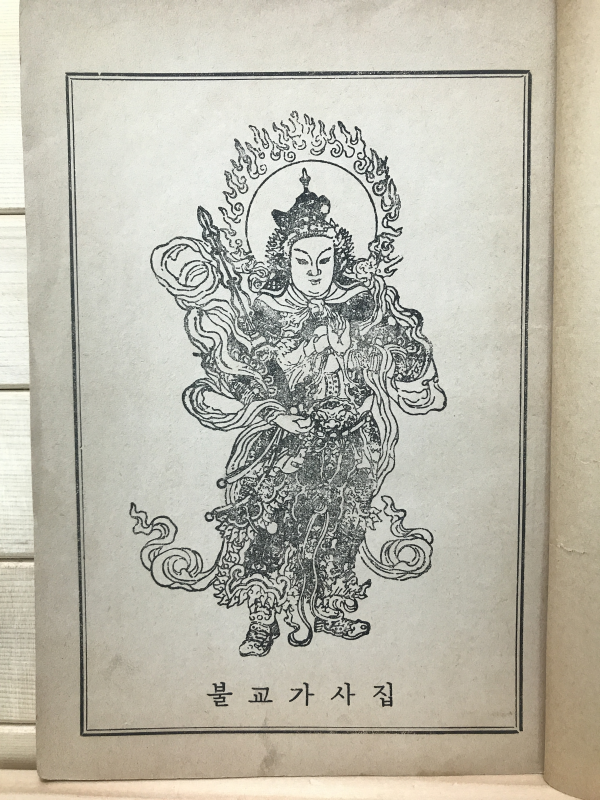 불교가사집